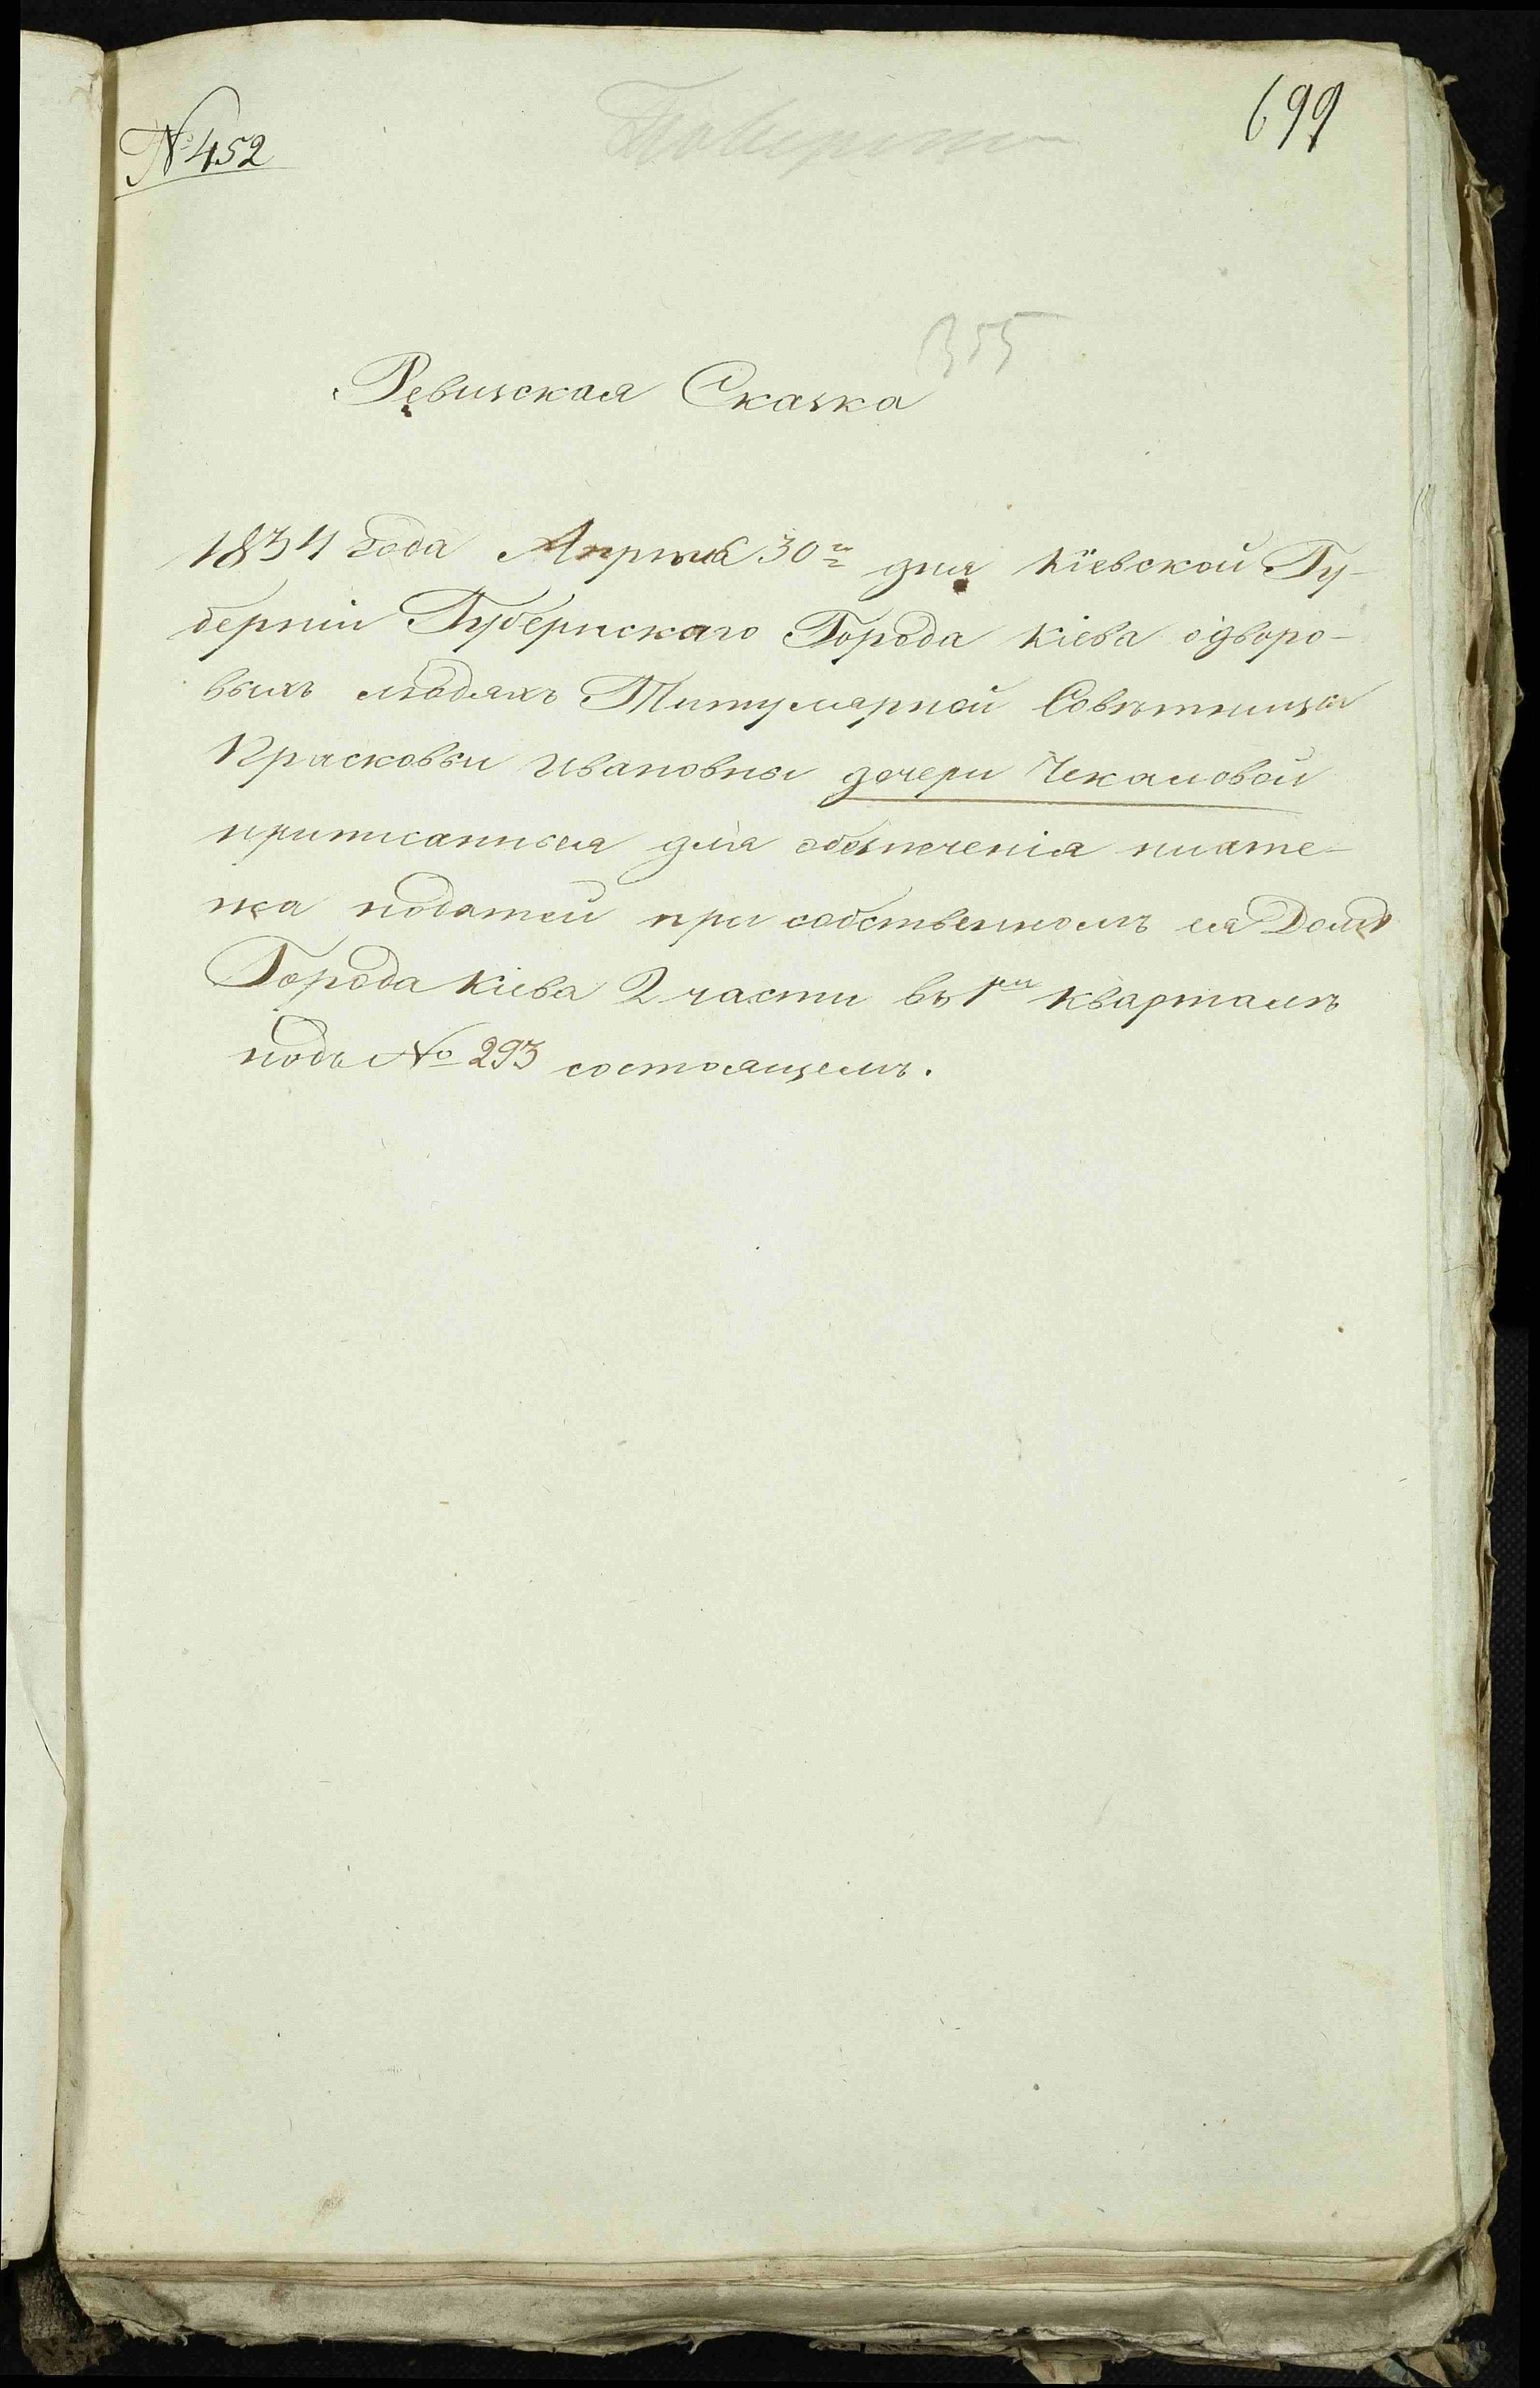 № 452
699
355
Ревизская Сказка
1834 года Апреля 30го дня Кіевской Гу-
берніи Губернскаго Города Кіева одворо-
выхъ людяхъ Титулярной Совѣтницы
Прасковьи Ивановны дочери Чекаловой
приписанныя для обезпеченія плате-
жа податей при собственномъ ея Домѣ
Города Кіева 2 части въ 1мъ кварталѣ
подъ № 293 состоящемъ.